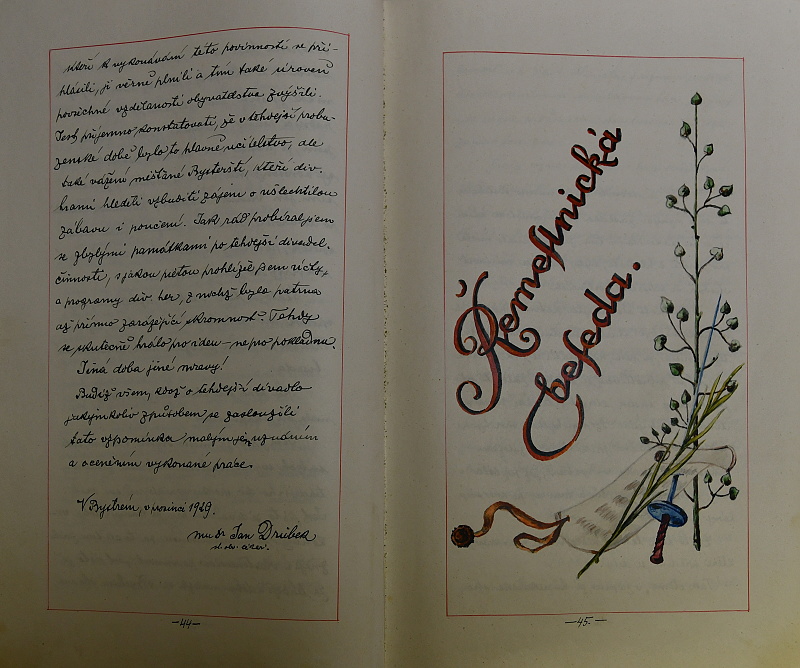 kteří k vykonávání této povinnosti se při-
hlásili, ji věrně plnili a tím také úroveň
povšechné vzdělanosti obyvatelstva zvýšili.
Jest příjemno konstatovati, že v tehdejší probu-
zenské době bylo to hlavně učitelstvo, ale
také vážené měšťané Bysterští, kteří div.
hrami hleděli vzbuditi zájem o ušlechtilou
zábavu i poučení. Jak rád probíral jsem
se zbylými památkami po tehdejší divadel.
činnosti, s jakou pietou prohlížel jsem
a programy div. her, z nichž byla patrna
až přímo zarážející skromnost. Tehdy
se skutečně hrálo pro ideu - ne pro pokladnu.
Jiná doba jiné mravy!
Budiž všem, kdož o tehdejší divadlo
jakýmkoliv způsobem se zasloužili
tato vzpomínka malým jej. uznáním
a oceněním vykonané práce.
V Bystrém, v prosinci 1929.
mudr Jan Drábek
-44-
Řemeslnická
beseda.
-45-